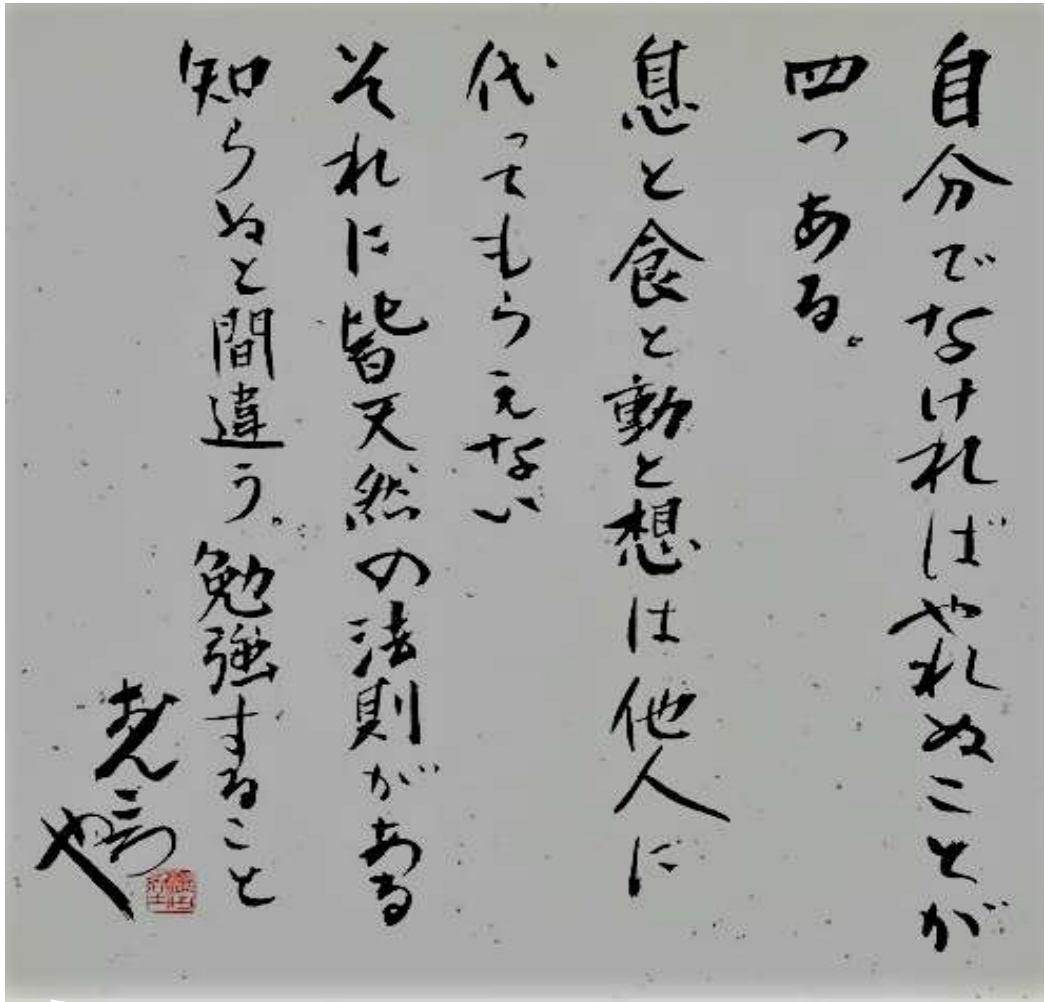 自分でなければやれぬことが
四つある。
息と食と動と想は他人に
代ってもらえない
それに皆天然の法則がある
知らぬと間違う。勉強すること